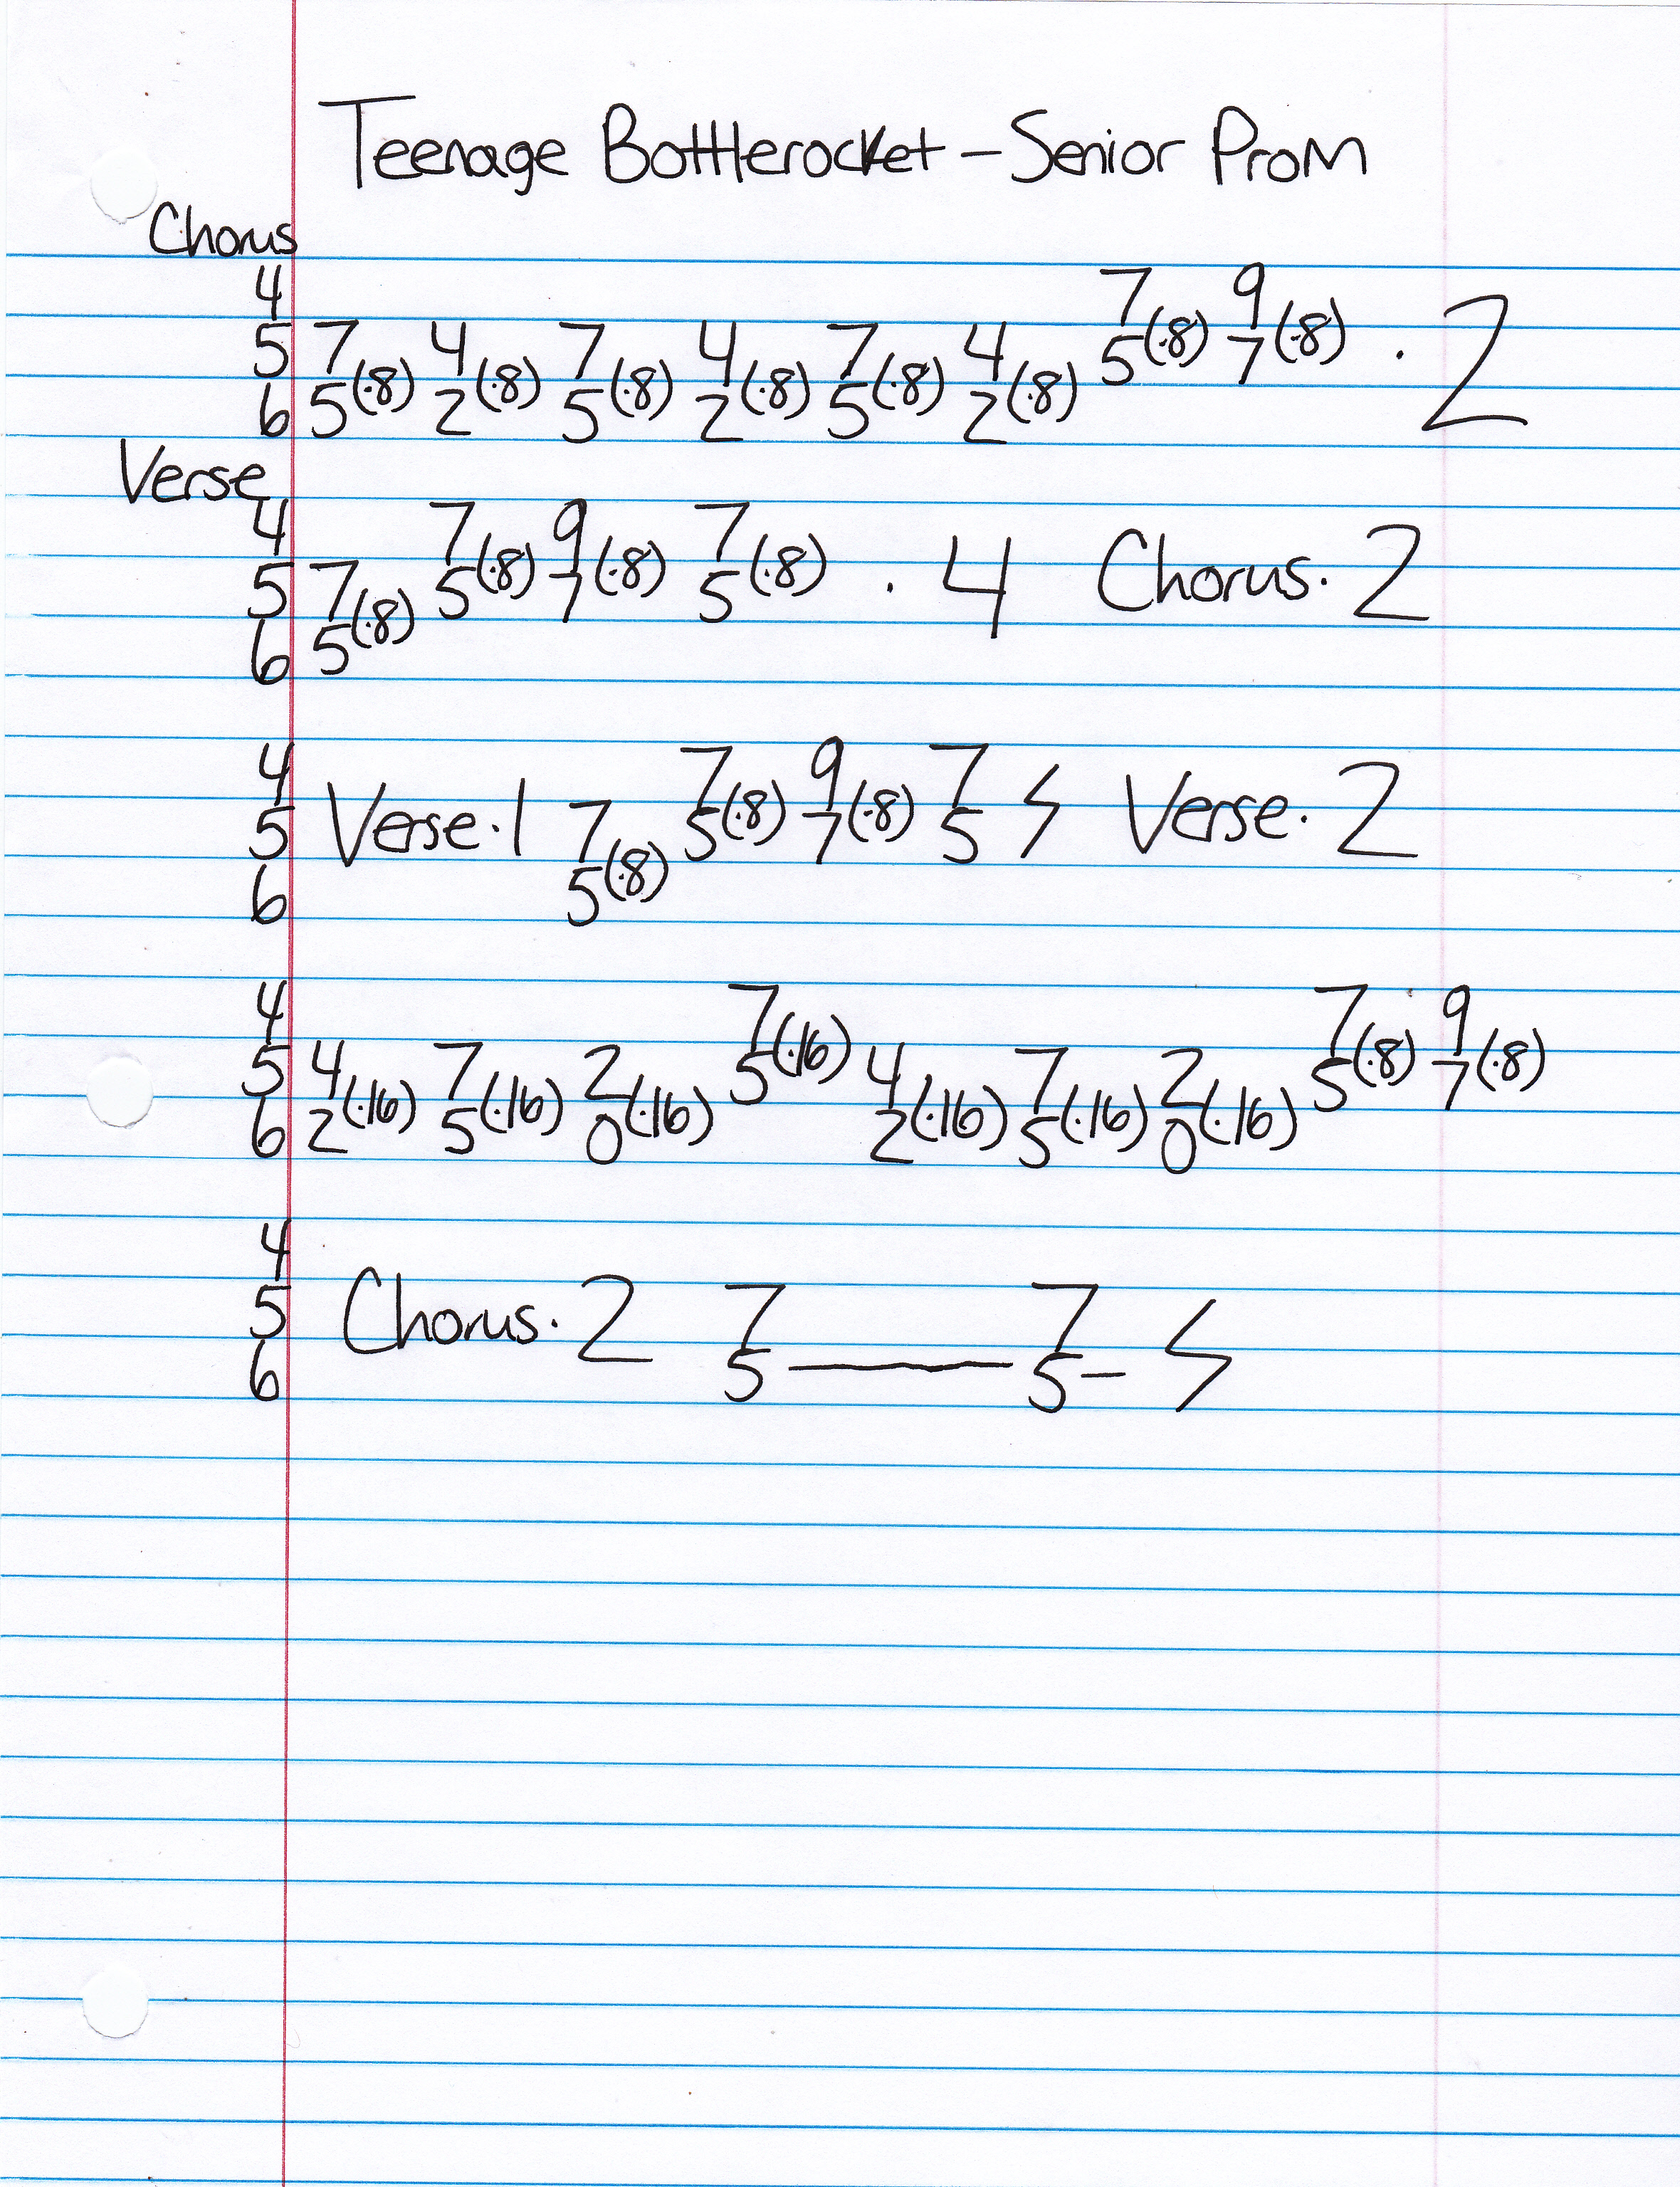 Teenage Bottlerocket - Senior Prom
Chorus
4 7(·8) 9(·8)
5 7(·8) 4(·8) 7(·8) 4(·8) 7(·8) 4(·8) 5 7 · 2
6 5 2 5 2 5 2
Verse
4 7(·8) 9(·8) 7(·8)
5 7(·8) 5 7 5 · 4 Chorus · 2
6 5
4 7(·8) 9(·8) 7
5 Verse · 1 7(·8) 5 7 5 Verse · 2
6 5
4 7(·16) 7(·8) 9(·8)
5 4(·16) 7(·16) 2(·16) 5 4(·16) 7(·16) 2(·16) 5 7
6 2 5 0 2 5 0
4
5 Chorus · 2 7 7
6 5 — 5 –